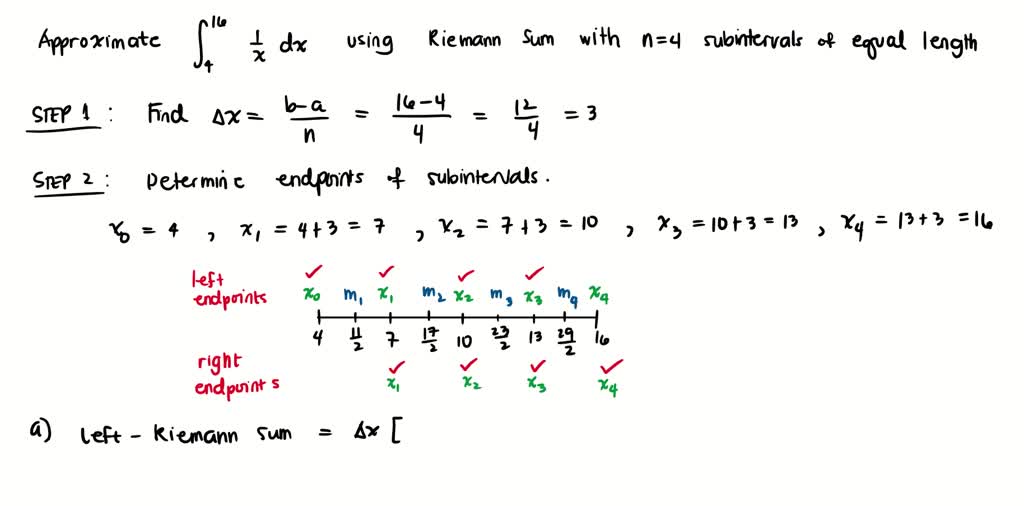 Approximate ∫₄¹⁶ 1/x dx using Riemann Sum with n=4 subintervals of equal length
STEP 1 : Find Δx = b-a/n = 16-4/4 = 12/4 = 3
STEP 2 : Determine endpoints of subintervals.
x₀ = 4 , x₁ = 4+3 = 7 , x₂ = 7+3 = 10 , x₃ = 10+3 = 13 , x₄ = 13+3 = 16
left endpoints ✓ ✓ ✓ ✓
x₀ m₁ x₁ m₂ x₂ m₃ x₃ m₄ x₄
4 11/2 7 17/2 10 23/2 13 29/2 16
right endpoints ✓ ✓ ✓ ✓
x₁ x₂ x₃ x₄
a) Left - Riemann sum = Δx [